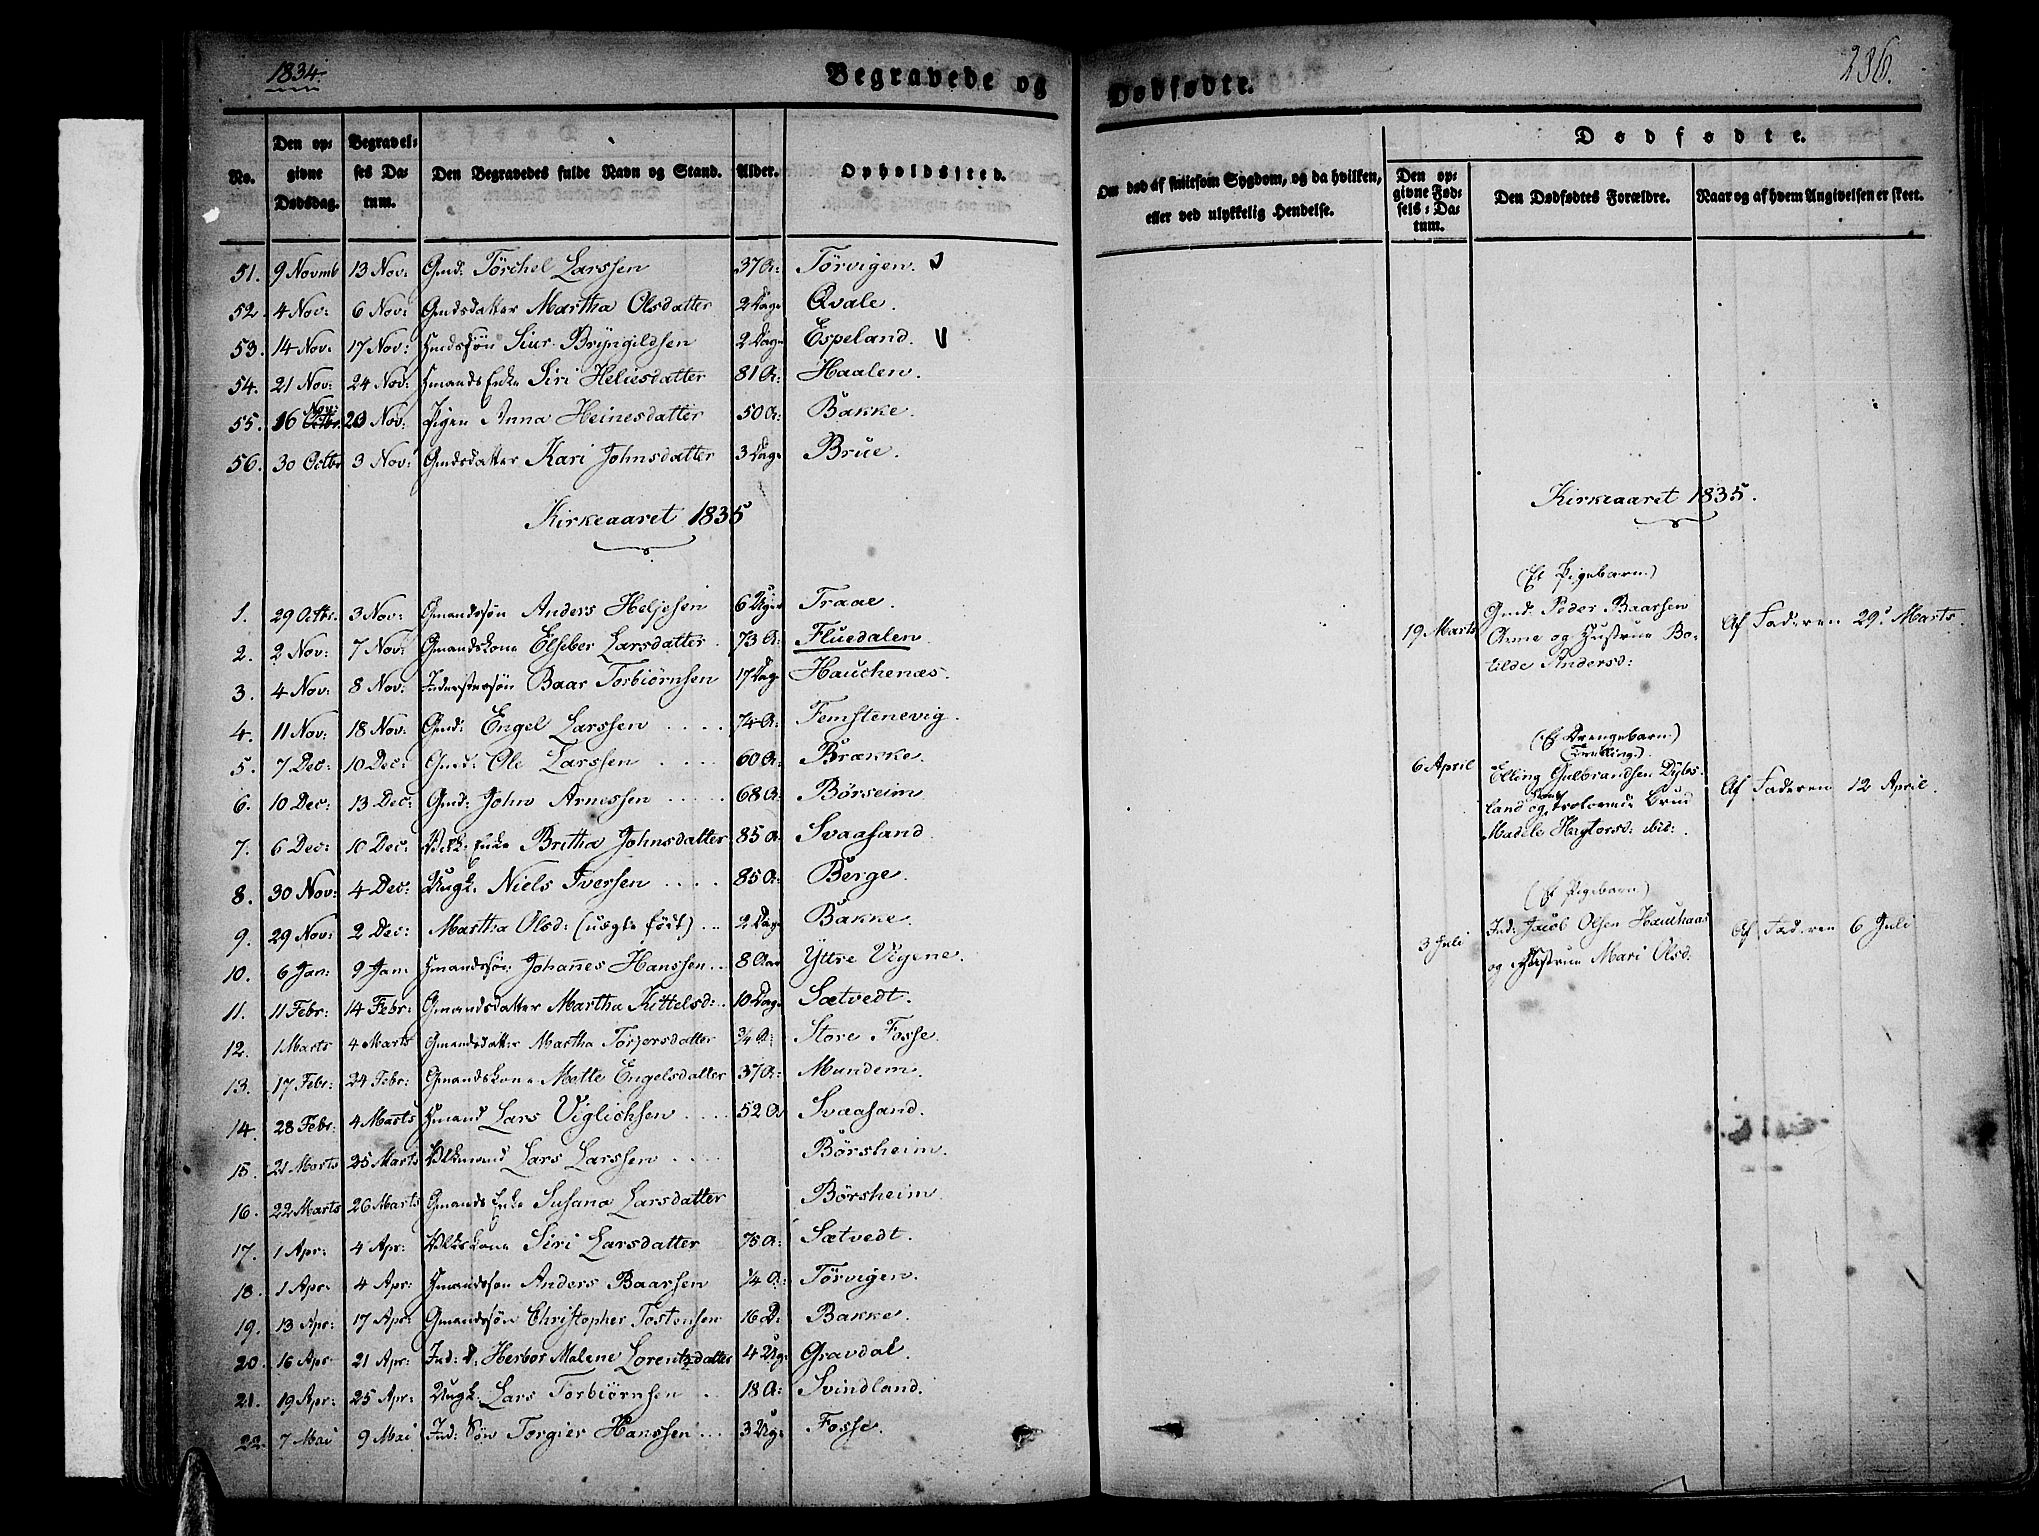 1834.
Begravede og
Dødfødte.
236.
No.
Den opgivne Dødsdag.
Begravelses Datum.
Den Begravedes fulde Navn og Stand.
Alder.
Opholdssted.
Om død af smitsom Sygdom, og da hvilken, eller ved ulykkelig Hendelse.
Dødfødte.
Den opgivne Fødsels-Datum.
Den Dødfødtes Forældre.
Naar og af hvem Angivelsen er skeet.
51. 9 Novmb 13 Nov: Gmd: Törchel Larssen 37 A: Törvigen.
52. 4 Nov: 6 Nov: Gmdsdatter Martha Olsdatter 2 Dage Qvale.
53. 14 Nov. 17 Nov: Hmdssøn Siur Bryngildsen 2 Dage Espeland.
54. 21 Nov: 24 Nov: Hmands Enke Siri Heliesdatter 81 A: Haalen.
55. 16 Octbr. Nov: 20 Nov: Pigen Anna Heinesdatter 50 A: Bakke.
56. 30 Octbr 3 Nov: Gmdsdatter Kari Johnsdatter 3 Dage Brue.
Kirkeaaret 1835
1. 29 Octbr. 3 Nov: Gmandssøn Anders Heljesen 6 Uger Traae.
2. 2 Nov: 7 Nov: Gmandskone Elseber Larsdatter 73 A: Fluedalen.
3. 4 Nov: 8 Nov: Inderstesøn Baar Torbiörnsen 17 Dage Hauchenæs.
4. 11 Nov: 18 Nov: Gmd: Engel Larssen 74 A: Femstenevig.
5. 7 Dec: 10 Dec: Gmd: Ole Larssen 60 A: Brække.
6. 10 Dec: 13 Dec: Gmd: John Arnessen 68 A: Börseim
7. 6 Dec: 10 Dec: Enke Britha Johnsdatter 85 A: Svaasand.
8. 30 Nov: 4 Dec: Ungk. Niels Iversen 85 A: Berge.
9. 29 Nov: 2 Dec: Martha Olsd: (uægte födt) 2 Dage Bakke.
10. 6 Jan: 9 Jan Hmandssøn: Johannes Hanssen 8 Aar Yttre Vigene.
11. 11 Febr: 14 Febr: Gmandsdatter Martha Kittelsd: 10 Dage Sætvedt.
12. 1 Marts 4 Marts Gmandsdatter Martha Torjersdatter 3/4 A: Store Fosse.
13. 17 Febr: 24 Febr: Gmandskone Mette Engelsdatter 37 A: Mundem.
14. 28 Febr: 4 Marts Hmand Lars Viglichsen 52 A Svaasand.
15. 21 Marts 25 Marts Lars Larssen Börsheim.
16. 22 Marts 26 Marts Gmands Enke Susana Larsdatter Börsheim.
17. 1 Apr: 4 Apr: Siri Larsdatter 75 A: Sætvedt.
18. 1 Apr: 4 Apr: Hmandssøn Anders Baarsen 1/4 A: Törvigen.
19. 13 Apr: 17 Apr: Gmandssøn Christopher Tostensen 16 D: Bakke.
20. 16 Apr 21 Apr: Ind: d. Herbor Malene Lorentzdatter 4 Ug: Gravdal.
21. 19 Apr: 25 Apr: Ungk. Lars Torbiörnsen 18 A: Svindland.
22. 7 Mai 9 Mai Ind: Søn Torgier Hanssen 3 Ug. Fosse.
Kirkeaaret 1835.
(Et Pigebarn)
19 Marts Gmd: Peder Baarsen
Aarne og Hustrue Bo-
tilde Andersd:
Af Faderen 29. Marts.
(Et Drengebarn)
(Tvilling)
6 April Elling Gulbrandsen
land og trolovede Brud
Madele ibid:
Af Faderen 12 April.
(Et Pigebarn)
3 Juli Ind: Jacob Olsen Hauhaas
og Hustrue Mari Olsd:
Af Faderen 6 Juli